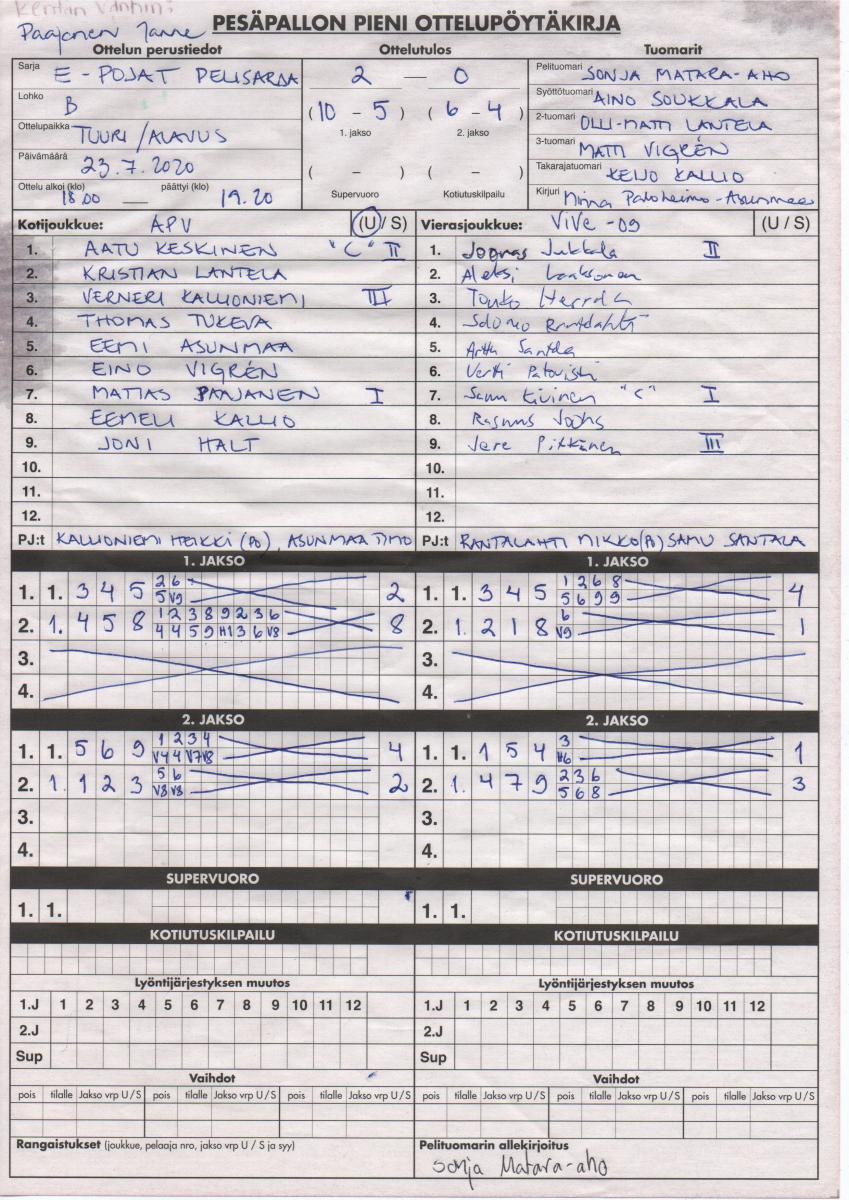 Kentän vanhin:
Paajanen Janne
PESÄPALLON PIENI OTTELUPÖYTÄKIRJA
Ottelun perustiedot Ottelutulos Tuomarit
Sarja E - POJAT PELISARJA
Lohko B
Ottelupaikka TUURI / ALAVUS
Päivämäärä 23.7.2020
Ottelu alkoi (klo) 18.00 — päättyi (klo) 19.20
2 — 0
(10 - 5) (6 - 4)
1. jakso 2. jakso
( - ) ( - )
Supervuoro Kotiutuskilpailu
Pelituomari SONJA MATARA-AHO
Syöttötuomari AINO SOUKKALA
2-tuomari OLLI-MATTI LANTELA
3-tuomari MATTI VIGRÉN
Takarajatuomari KEIJO KALLIO
Kirjuri Ninna Paloheimo-Asunmaa
Kotijoukkue: APV (U / S)
1. AATU KESKINEN "C" II
2. KRISTIAN LANTELA
3. VERNERI KALLIONIEMI III
4. THOMAS TUKEVA
5. EEMI ASUNMAA
6. EINO VIGRÉN
7. MATIAS PAAJANEN I
8. EEMELI KALLIO
9. JONI HALT
10.
11.
12.
PJ:t KALLIONIEMI HEIKKI (PO), ASUNMAA TIMO
Vierasjoukkue: ViVe -09 (U / S)
1. Joonas Jukkala II
2. Aleksi Laaksonen
3. Touko Herrala
4. Solomo Rantalahti
5. Arttu Santala
6. Vertti
7. Samu Kivinen "C" I
8. Rasmus
9. Jere Pitkänen III
10.
11.
12.
PJ:t RANTALAHTI MIKKO (PJ) SAMU SANTALA
1. JAKSO
1. 1. 3 4 5 2 6 2
5 V9
2. 1. 4 5 8 1 2 3 8 9 2 3 6 8
4 4 5 9 H1 3 6 V8
3.
4.
1. JAKSO
1. 1. 3 4 5 1 2 6 8 4
5 6 9 9
2. 1. 2 1 8 6 1
V9
3.
4.
2. JAKSO
1. 1. 5 6 9 1 2 3 4 4
V4 4 V7 V8
2. 1. 1 2 3 5 6 2
V8 V8
3.
4.
2. JAKSO
1. 1. 1 5 4 3 1
V6
2. 1. 4 7 9 2 3 6 3
5 6 8
3.
4.
SUPERVUORO SUPERVUORO
1. 1. 1. 1.
KOTIUTUSKILPAILU KOTIUTUSKILPAILU
Lyöntijärjestyksen muutos Lyöntijärjestyksen muutos
1.J 1 2 3 4 5 6 7 8 9 10 11 12 1.J 1 2 3 4 5 6 7 8 9 10 11 12
2.J 2.J
Sup Sup
Vaihdot Vaihdot
pois tilalle Jakso vrp U/S pois tilalle Jakso vrp U/S pois tilalle Jakso vrp U/S pois tilalle Jakso vrp U/S pois tilalle Jakso vrp U/S pois tilalle Jakso vrp U/S
Rangaistukset (joukkue, pelaaja nro, jakso vrp U / S ja syy)
Pelituomarin allekirjoitus
Sonja Matara-aho